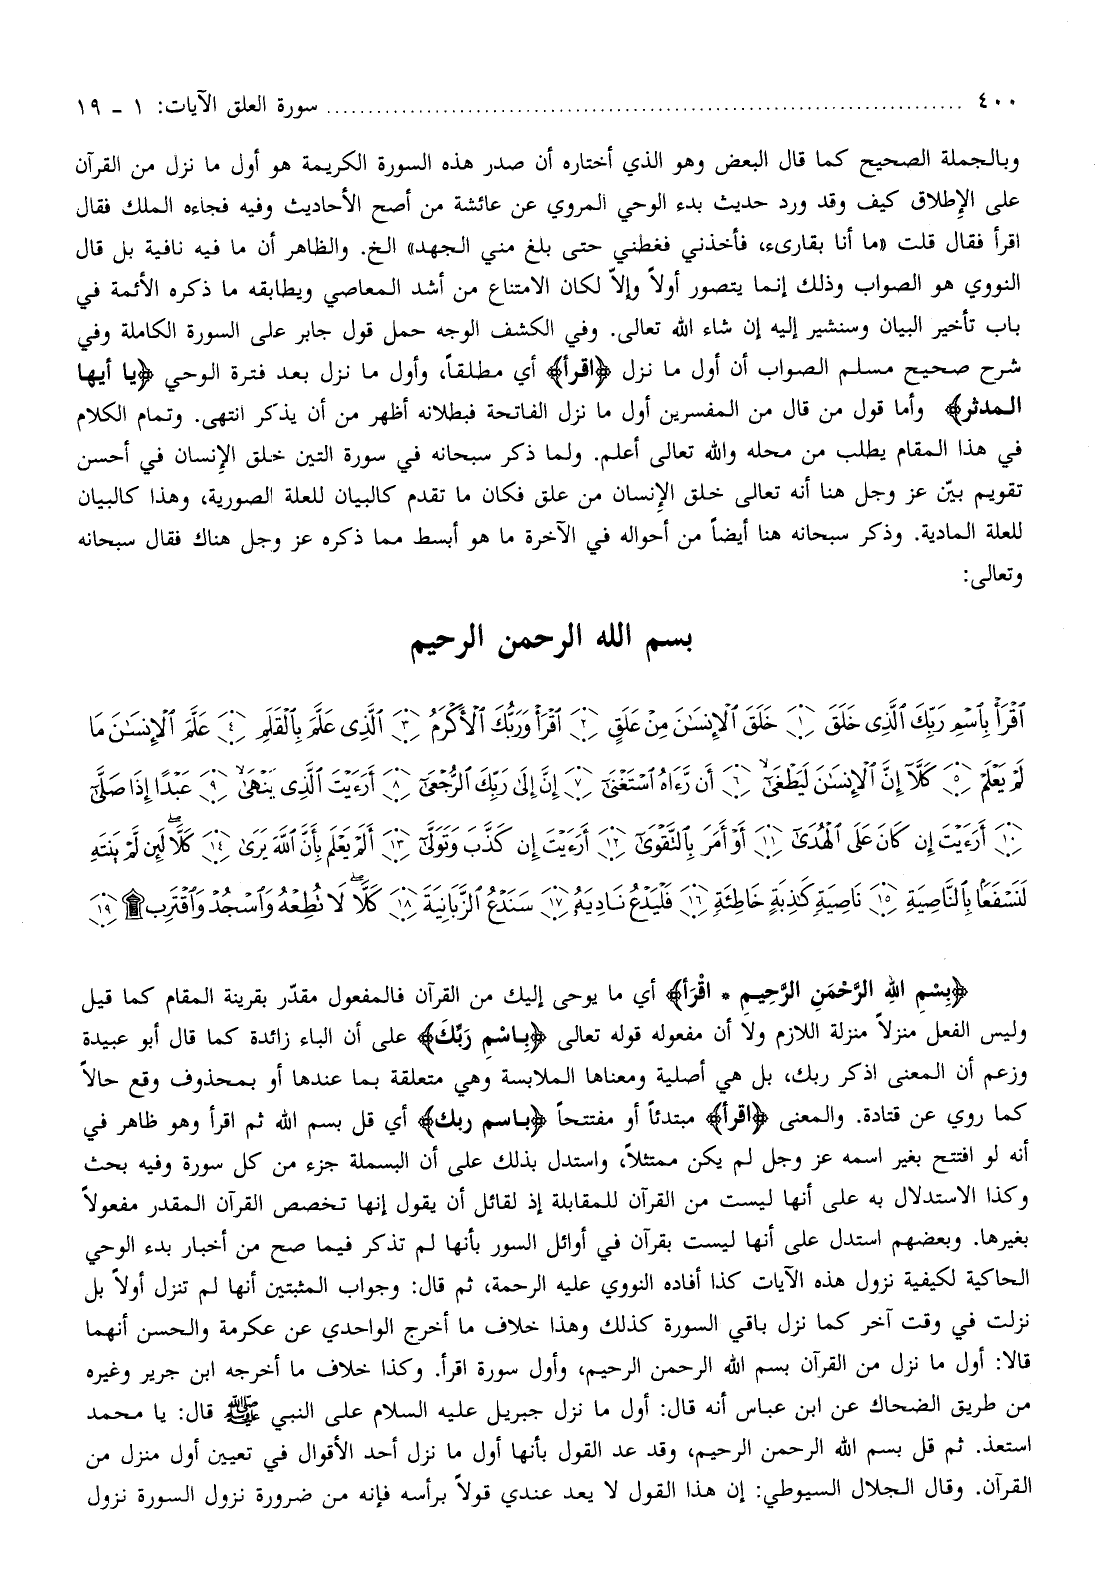 ٤٠٠ ........................................ سورة العلق الآيات: ١ - ١٩
وبالجملة الصحيح كما قال البعض وهو الذي أختاره أن صدر هذه السورة الكريمة هو أول ما نزل من القرآن
على الإطلاق كيف وقد ورد حديث بدء الوحي المروي عن عائشة من أصح الأحاديث وفيه فجاءه الملك فقال
اقرأ فقال قلت «ما أنا بقارىء، فأخذني فغطني حتى بلغ مني الجهد» الخ. والظاهر أن ما فيه نافية بل قال
النووي هو الصواب وذلك إنما يتصور أولاً وإلاّ لكان الامتناع من أشد المعاصي ويطابقه ما ذكره الأئمة في
باب تأخير البيان وسنشير إليه إن شاء الله تعالى. وفي الكشف الوجه حمل قول جابر على السورة الكاملة وفي
شرح صحيح مسلم الصواب أن أول ما نزل ﴿اقرأ﴾ أي مطلقاً، وأول ما نزل بعد فترة الوحي ﴿يا أيها
المدثر﴾ وأما قول من قال من المفسرين أول ما نزل الفاتحة فبطلانه أظهر من أن يذكر انتهى. وتمام الكلام
في هذا المقام يطلب من محله والله تعالى أعلم. ولما ذكر سبحانه في سورة التين خلق الإنسان في أحسن
تقويم بيّن عز وجل هنا أنه تعالى خلق الإنسان من علق فكان ما تقدم كالبيان للعلة الصورية، وهذا كالبيان
للعلة المادية. وذكر سبحانه هنا أيضاً من أحواله في الآخرة ما هو أبسط مما ذكره عز وجل هناك فقال سبحانه
وتعالى:
بسم الله الرحمن الرحيم
ٱقْرَأْ بِٱسْمِ رَبِّكَ ٱلَّذِى خَلَقَ ۝١ خَلَقَ ٱلْإِنسَٰنَ مِنْ عَلَقٍ ۝٢ ٱقْرَأْ وَرَبُّكَ ٱلْأَكْرَمُ ۝٣ ٱلَّذِى عَلَّمَ بِٱلْقَلَمِ ۝٤ عَلَّمَ ٱلْإِنسَٰنَ مَا
لَمْ يَعْلَمْ ۝٥ كَلَّآ إِنَّ ٱلْإِنسَٰنَ لَيَطْغَىٰٓ ۝٦ أَن رَّءَاهُ ٱسْتَغْنَىٰٓ ۝٧ إِنَّ إِلَىٰ رَبِّكَ ٱلرُّجْعَىٰٓ ۝٨ أَرَءَيْتَ ٱلَّذِى يَنْهَىٰ ۝٩ عَبْدًا إِذَا صَلَّىٰٓ
۝١٠ أَرَءَيْتَ إِن كَانَ عَلَى ٱلْهُدَىٰٓ ۝١١ أَوْ أَمَرَ بِٱلتَّقْوَىٰٓ ۝١٢ أَرَءَيْتَ إِن كَذَّبَ وَتَوَلَّىٰٓ ۝١٣ أَلَمْ يَعْلَم بِأَنَّ ٱللَّهَ يَرَىٰ ۝١٤ كَلَّا لَئِن لَّمْ يَنتَهِ
لَنَسْفَعًۢا بِٱلنَّاصِيَةِ ۝١٥ نَاصِيَةٍ كَٰذِبَةٍ خَاطِئَةٍ ۝١٦ فَلْيَدْعُ نَادِيَهُۥ ۝١٧ سَنَدْعُ ٱلزَّبَانِيَةَ ۝١٨ كَلَّا لَا تُطِعْهُ وَٱسْجُدْ وَٱقْتَرِب ۩ ۝١٩
﴿بِسْمِ اللهِ الرَّحْمَنِ الرَّحِيمِ * اقْرَأْ﴾ أي ما يوحى إليك من القرآن فالمفعول مقدّر بقرينة المقام كما قيل
وليس الفعل منزلاً منزلة اللازم ولا أن مفعوله قوله تعالى ﴿بِاسْمِ رَبِّكَ﴾ على أن الباء زائدة كما قال أبو عبيدة
وزعم أن المعنى اذكر ربك، بل هي أصلية ومعناها الملابسة وهي متعلقة بما عندها أو بمحذوف وقع حالاً
كما روي عن قتادة. والمعنى ﴿اقرأ﴾ مبتدئاً أو مفتتحاً ﴿باسم ربك﴾ أي قل بسم الله ثم اقرأ وهو ظاهر في
أنه لو افتتح بغير اسمه عز وجل لم يكن ممتثلاً، واستدل بذلك على أن البسملة جزء من كل سورة وفيه بحث
وكذا الاستدلال به على أنها ليست من القرآن للمقابلة إذ لقائل أن يقول إنها تخصص القرآن المقدر مفعولاً
بغيرها. وبعضهم استدل على أنها ليست بقرآن في أوائل السور بأنها لم تذكر فيما صح من أخبار بدء الوحي
الحاكية لكيفية نزول هذه الآيات كذا أفاده النووي عليه الرحمة، ثم قال: وجواب المثبتين أنها لم تنزل أولاً بل
نزلت في وقت آخر كما نزل باقي السورة كذلك وهذا خلاف ما أخرج الواحدي عن عكرمة والحسن أنهما
قالا: أول ما نزل من القرآن بسم الله الرحمن الرحيم، وأول سورة اقرأ. وكذا خلاف ما أخرجه ابن جرير وغيره
من طريق الضحاك عن ابن عباس أنه قال: أول ما نزل جبريل عليه السلام على النبي ﷺ قال: يا محمد
استعذ. ثم قل بسم الله الرحمن الرحيم، وقد عد القول بأنها أول ما نزل أحد الأقوال في تعيين أول منزل من
القرآن. وقال الجلال السيوطي: إن هذا القول لا يعد عندي قولاً برأسه فإنه من ضرورة نزول السورة نزول